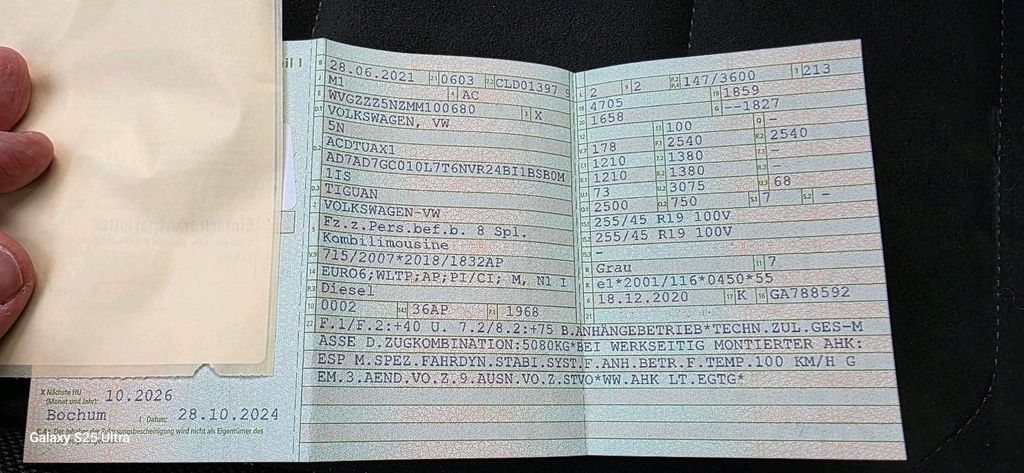 28.06.2021 2.1 0603 2.2 CLD01397 9
M1 4 AC
WVGZZZ5NZMM100680 3 X
VOLKSWAGEN, VW
5N
ACDTUAX1
AD7AD7GC010L7T6NVR24BI1BSB0M
1IS
TIGUAN
VOLKSWAGEN-VW
Fz.z.Pers.bef.b. 8 Spl.
Kombilimousine
715/2007*2018/1832AP
EURO6;WLTP;AP;PI/CI; M, N1 I
Diesel
0002 36AP 1968
2 9 2 147/3600 T 213
4705 1859
1658 --1827
100 -
178 2540 2540
1210 1380 -
1210 1380 -
73 3075 68
2500 750 7 -
255/45 R19 100V
255/45 R19 100V
-
Grau 11 7
e1*2001/116*0450*55
6 18.12.2020 17 K 16 GA788592
22 F.1/F.2:+40 U. 7.2/8.2:+75 B.ANHÄNGEBETRIEB*TECHN.ZUL.GES-M
ASSE D.ZUGKOMBINATION:5080KG*BEI WERKSEITIG MONTIERTER AHK:
ESP M.SPEZ.FAHRDYN.STABI.SYST.F.ANH.BETR.F.TEMP.100 KM/H G
EM.3.AEND.VO.Z.9.AUSN.VO.Z.STVO*WW.AHK LT.EGTG*
X Nächste HU
(Monat und Jahr): 10.2026
Bochum Datum: 28.10.2024
Der Inhaber der Zulassungsbescheinigung wird nicht als Eigentümer des
Galaxy S25 Ultra